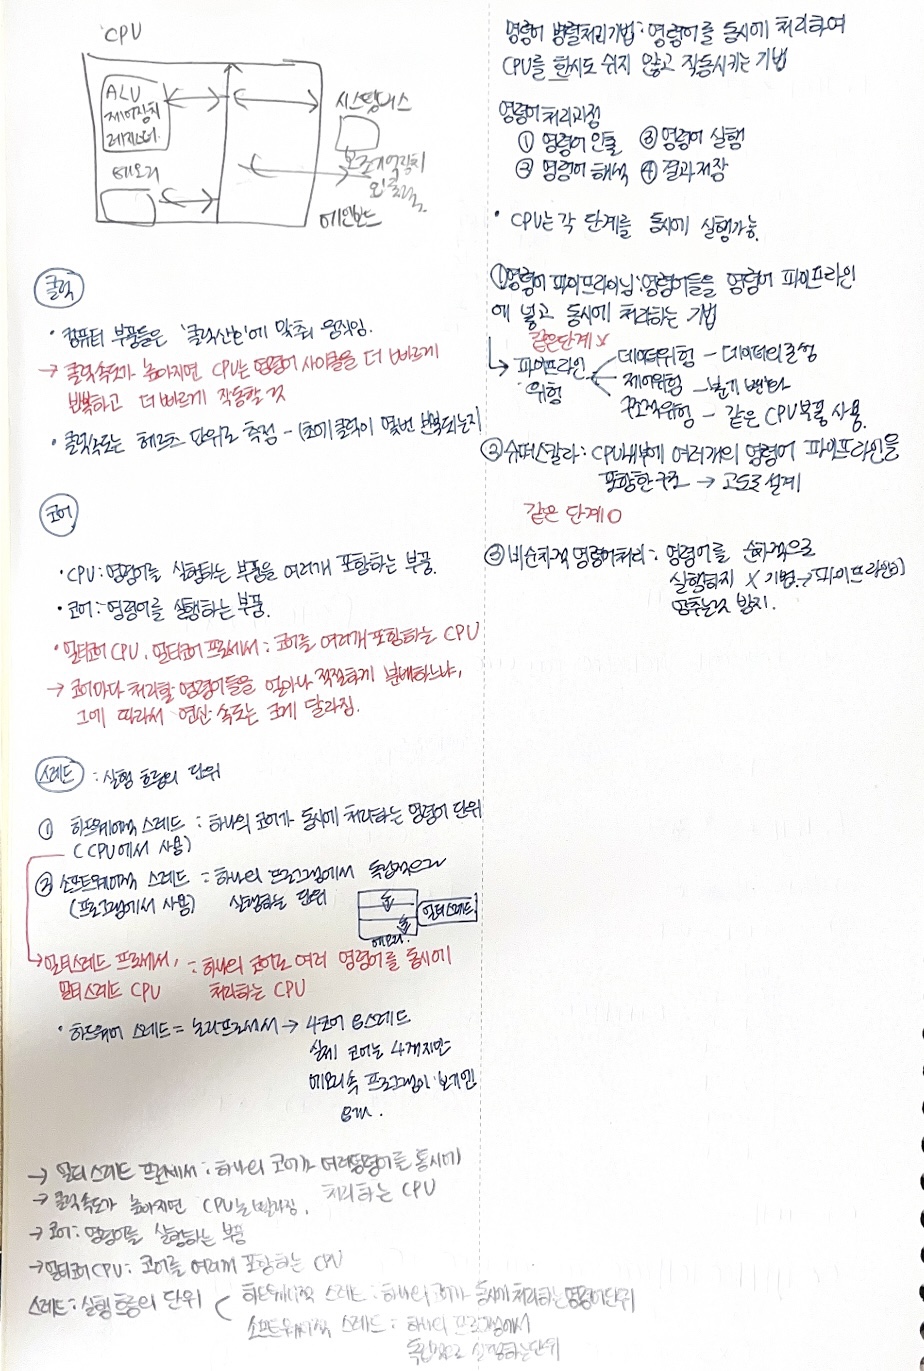 CPU
ALU
제어장치
레지스터
메모리
시스템버스
보조기억장치
입출력
메인보드
클럭
· 컴퓨터 부품들은 '클럭신호'에 맞춰 움직임.
→ 클럭속도가 높아지면 CPU는 명령어 사이클을 더 빠르게
반복하고 더 빠르게 작동할 것
· 클럭속도는 헤르츠 단위로 측정 - 1초에 클럭이 몇번 반복되는지
코어
· CPU : 명령어를 실행하는 부품을 여러개 포함하는 부품.
· 코어 : 명령어를 실행하는 부품.
· 멀티코어 CPU, 멀티코어 프로세서 : 코어를 여러개 포함하는 CPU
→ 코어마다 처리할 명령어들을 얼마나 적절하게 분배하느냐,
그에 따라서 연산 속도는 크게 달라짐.
스레드 : 실행 흐름의 단위
① 하드웨어적 스레드 : 하나의 코어가 동시에 처리하는 명령어 단위
(CPU에서 사용)
② 소프트웨어적 스레드 : 하나의 프로그램에서 독립적으로
(프로그램에서 사용) 실행하는 단위
멀티스레드
메모리
→ 멀티스레드 프로세서, : 하나의 코어로 여러 명령어를 동시에
멀티스레드 CPU 처리하는 CPU
· 하드웨어 스레드 = 논리프로세서 → 4코어 8스레드
실제 코어는 4개지만
메모리속 프로그램이 보기엔
8개.
→ 멀티스레드 프로세서 : 하나의 코어가 여러명령어를 동시에
처리하는 CPU
→ 클럭속도가 높아지면 CPU는 빨라짐.
→ 코어 : 명령어를 실행하는 부품
→ 멀티코어 CPU : 코어를 여러개 포함하는 CPU
스레드 : 실행흐름의 단위
하드웨어적 스레드 : 하나의 코어가 동시에 처리하는 명령어단위
소프트웨어적 스레드 : 하나의 프로그램에서
독립적으로 실행하는단위
명령어 병렬처리기법 : 명령어를 동시에 처리하여
CPU를 한시도 쉬지 않고 작동시키는 기법
명령어처리과정
① 명령어 인출 ③ 명령어 실행
② 명령어 해석 ④ 결과저장
· CPU는 각 단계를 동시에 실행가능.
①명령어 파이프라이닝 : 명령어들을 명령어 파이프라인
에 넣고 동시에 처리하는 기법
같은단계 X
↳ 파이프라인 위험
데이터위험 - 데이터 의존성
제어위험 - 분기 변화
구조적위험 - 같은 CPU 부품 사용.
② 슈퍼스칼라 : CPU내부에 여러개의 명령어 파이프라인을
포함한 구조 → 고도로 설계
같은 단계 O
③ 비순차적 명령어처리 : 명령어를 순차적으로
실행하지 X 기법. → 파이프라인이
멈추는것 방지.